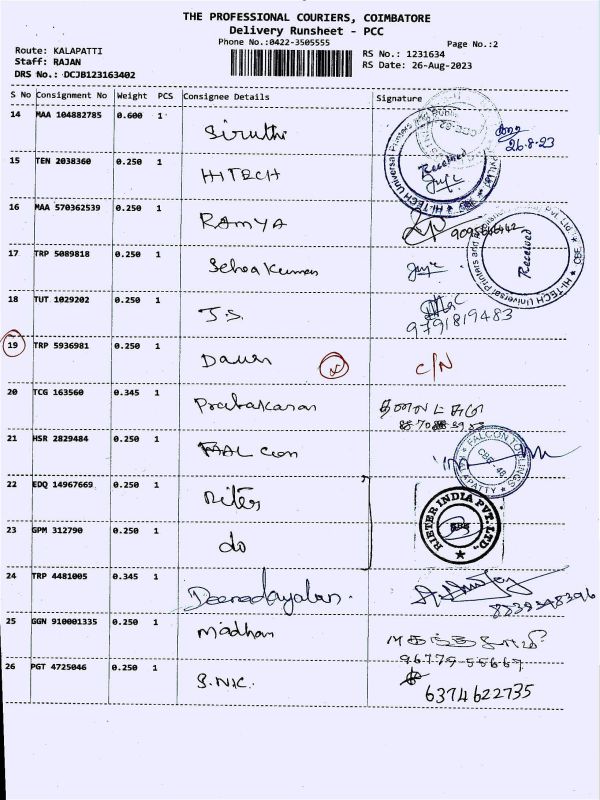 THE PROFESSIONAL COURIERS, COIMBATORE
Delivery Runsheet - PCC
Phone No.:0422-3505555
Page No.:2
Route: KALAPATTI
Staff: RAJAN
DRS No.: DCJB123163402
RS No.: 1231634
RS Date: 26-Aug-2023
S No Consignment No Weight PCS Consignee Details Signature
14 MAA 104882785 0.600 1 Siruthi
26.8.23
Received
15 TEN 2038360 0.250 1 HITECH
HI-TECH Universal Printers and
16 MAA 570362539 0.250 1 RAMYA
17 TRP 5089818 0.250 1
Received
HI-TECH Universal Printers and Pvt. Ltd. CBE
18 TUT 1029202 0.250 1 J.S
9791819483
19 TRP 5936981 0.250 1 C/N
20 TCG 163560 0.345 1 Prabakaran
21 HSR 2829484 0.250 1
FALCON TOOLINGS
22 EDQ 14967669 0.250 1 Riter
RIETER INDIA PVT. LTD.
23 GPM 312790 0.250 1 do
24 TRP 4481005 0.345 1 Deenadayalan.
25 GGN 910001335 0.250 1 Madhan
96779-55667
26 PGT 4725046 0.250 1 S.N.C.
6374622735